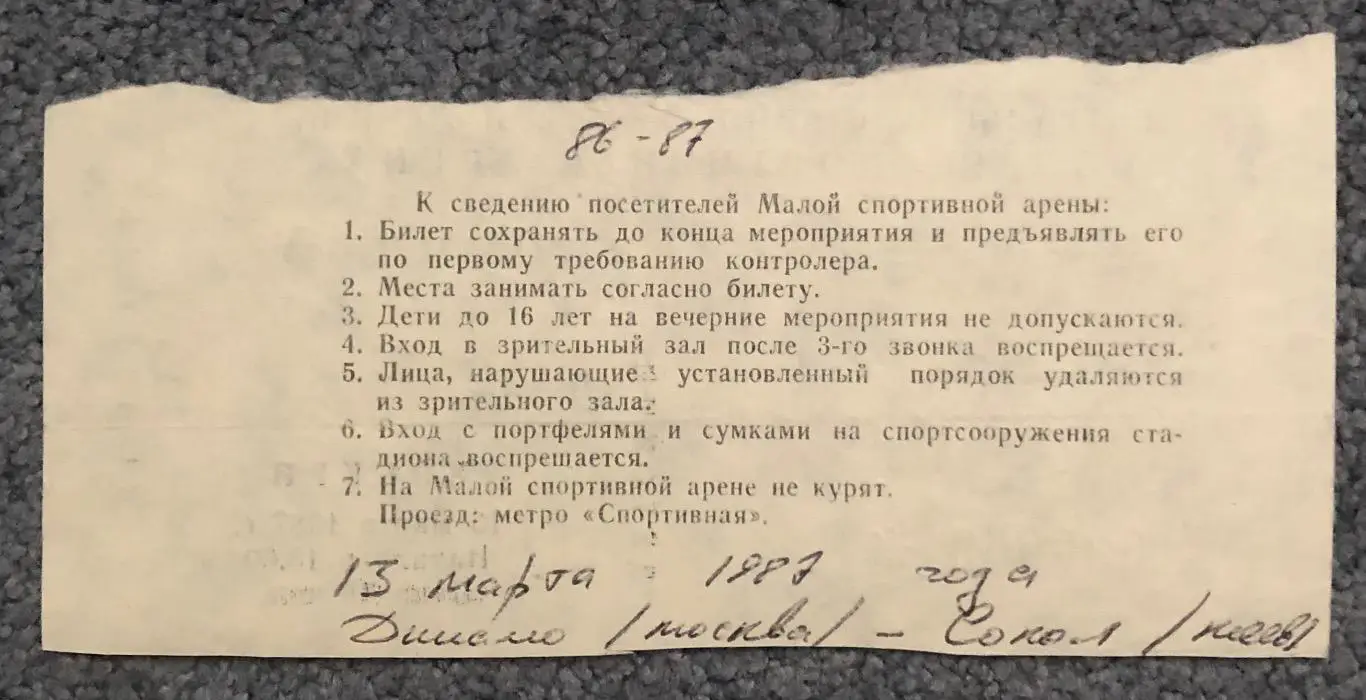 86-87
К сведению посетителей Малой спортивной арены:
1. Билет сохранять до конца мероприятия и предъявлять его
по первому требованию контролера.
2. Места занимать согласно билету.
3. Дети до 16 лет на вечерние мероприятия не допускаются.
4. Вход в зрительный зал после 3-го звонка воспрещается.
5. Лица, нарушающие установленный порядок удаляются
из зрительного зала.
6. Вход с портфелями и сумками на спортсооружения ста-
диона воспрешается.
7. На Малой спортивной арене не курят.
Проезд: метро «Спортивная».
13 марта 1987 года
Динамо /москва/ - Сокол /киев/